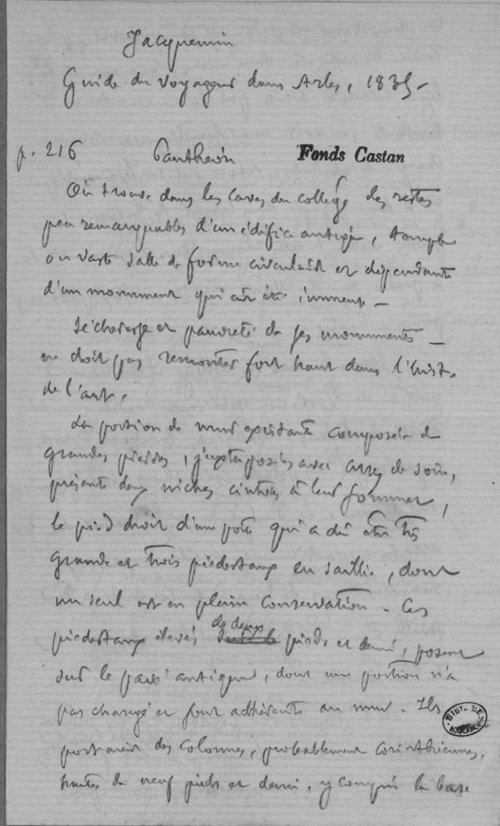 Jacquemin
Guide du voyageur dans Arles, 1835 -
p. 216 Panthéon Fonds Castan
On trouve dans les caves du collège des restes
peu remarquables d'un édifice antique, temple
ou vaste salle de forme circulaire et dépendante
d'un monument qui a été immense -
Sécheresse et pauvreté de ses monuments -
ne doit pas remonter fort haut dans l'hist.
de l'art.
La portion de mur existante composée de
grandes pierres, juxtaposées avec assez de soin,
présente deux niches cintrées à leur sommet,
le pied droit d'une porte qui a dû être très
grande et trois piédestaux en saillie, dont
un seul est en pleine conservation - Ces
piédestaux élevés de deux pieds et demi, posent
sur le pavé antique, dont une portion n'a
pas changé et sont adhérents au mur. Ils
BIBL. DE
portaient des colonnes, probablement corinthiennes,
hautes de neuf pieds et demi, y compris la base